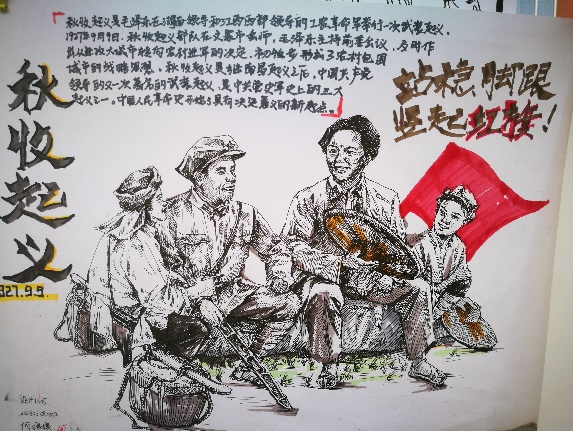 秋收起义是毛泽东在湖南领导和江西西部领导的工农革命军举行一次武装起义。
1927年9月9日。秋收起义部队在文家市会师，毛泽东主持前委会议，及时作
出从进攻大城市转向农村进军的决定，初步形成了农村包围
城市的战略思想，秋收起义是继南昌起义之后，中国共产党
领导的又一次著名的武装起义，是中共党史上的三大
起义之一，中国人民革命史开始具有决定意义的新起点。
秋收起义
1927.9.9.
站稳脚跟
竖起红旗！